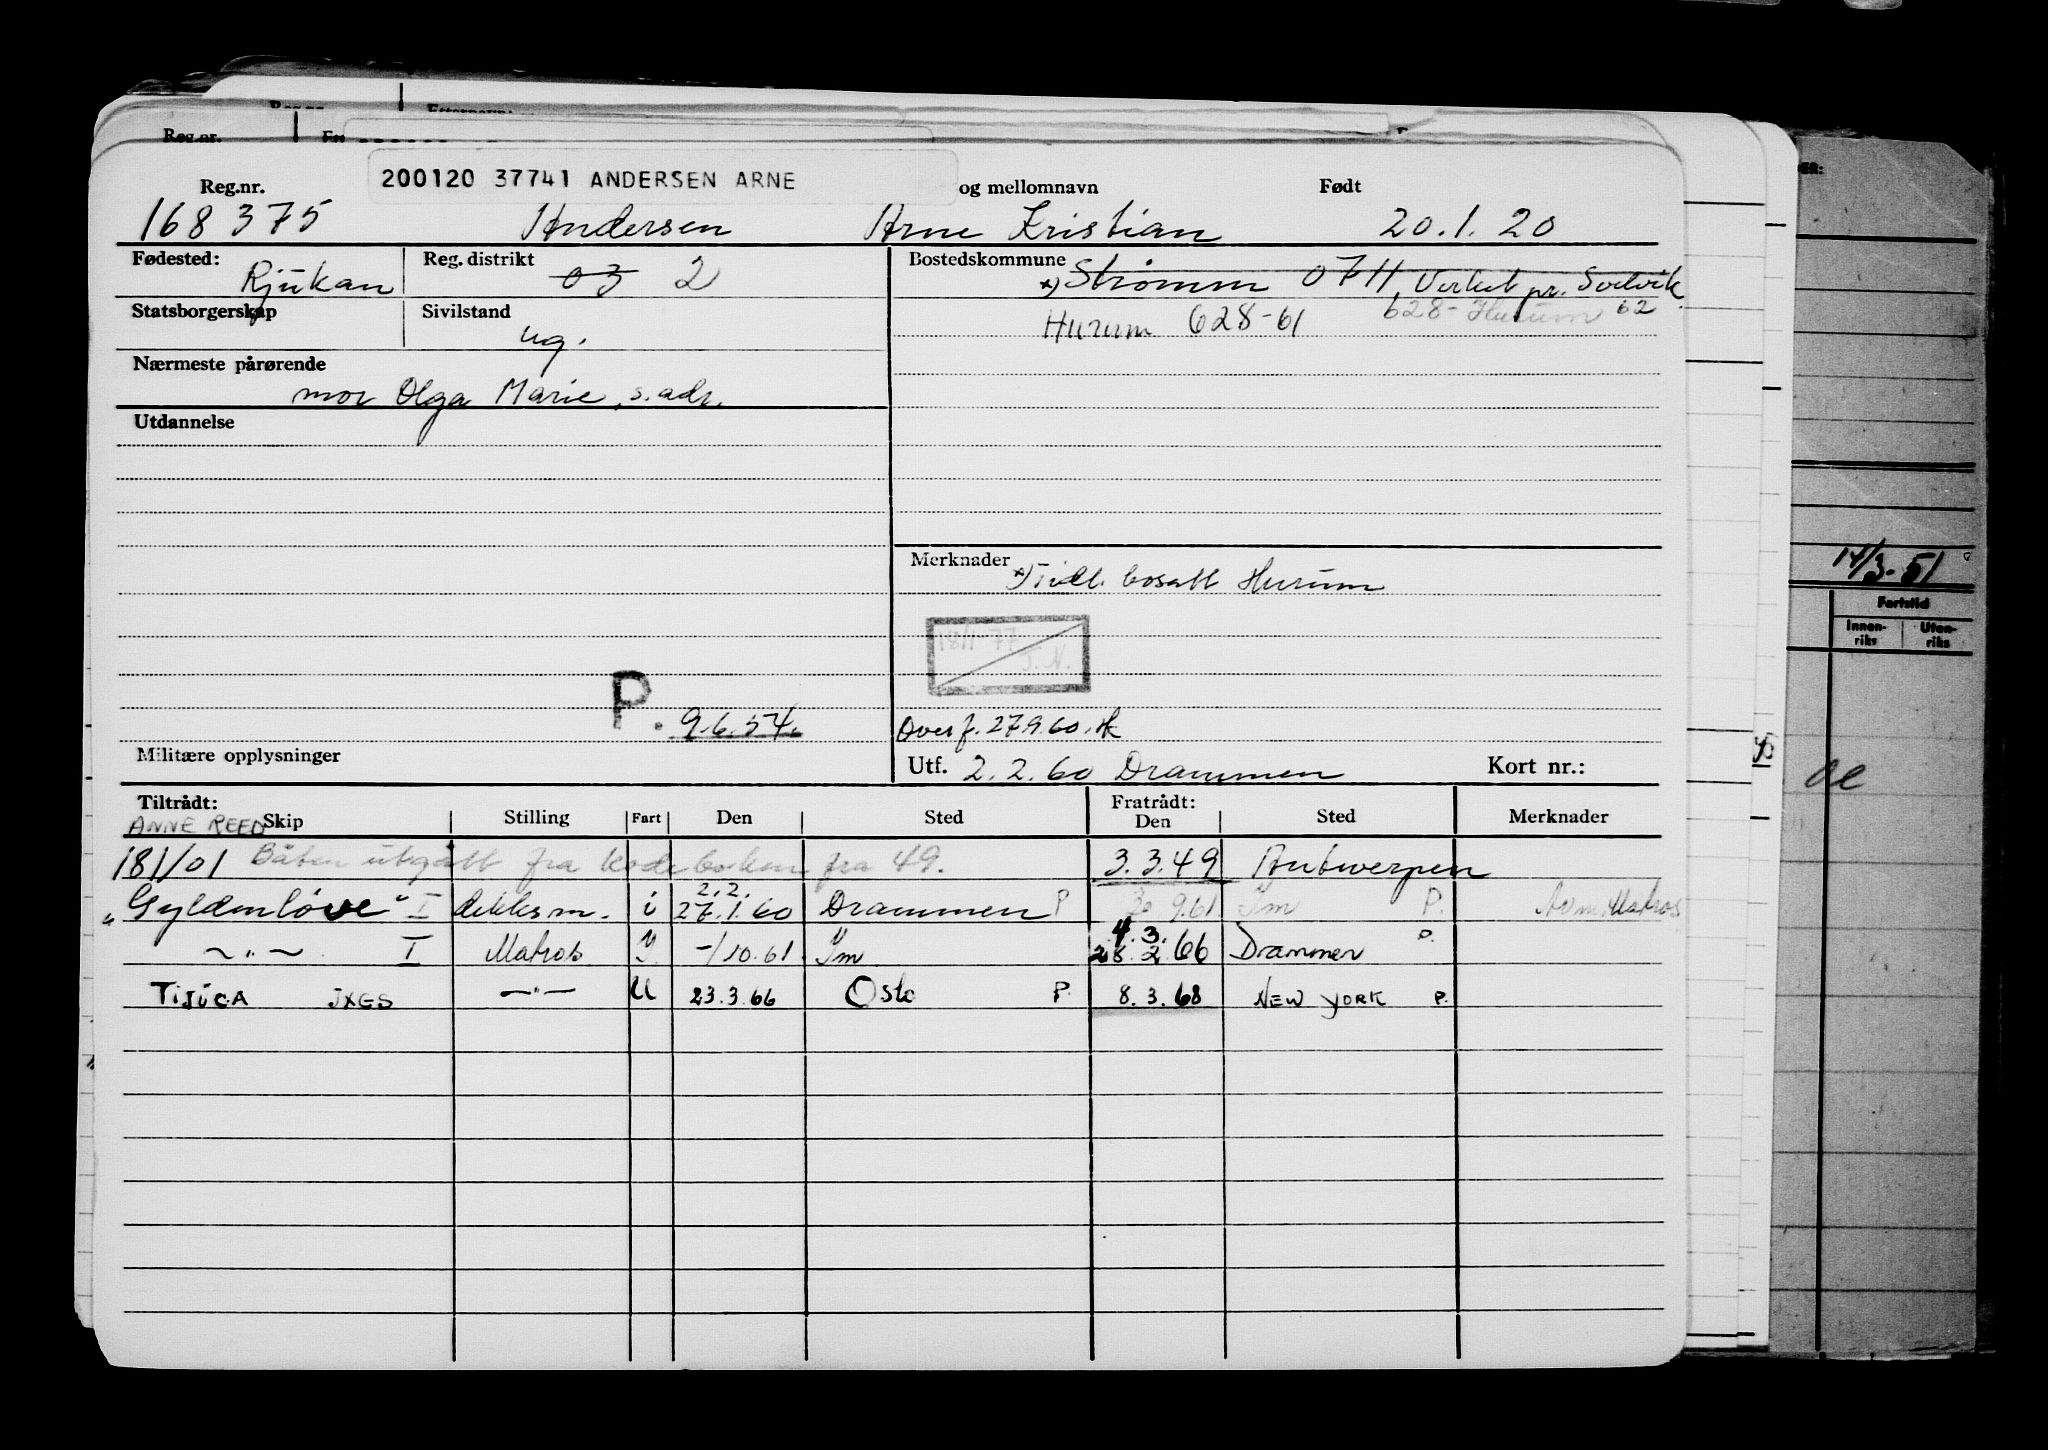 Reg.nr.
200120 37741 ANDERSEN ARNE
Reg.nr. og mellomnavn Født
168 375 Andersen Arne Kristian 20.1.20
Fødested: Rjukan Reg. distrikt 03 2 Bostedskommune *) Strømm 0711, Verket pr. Svelvik
Statsborgerskap Sivilstand ug. Hurum 628-61 628- Hurum 62
Nærmeste pårørende
mor Olga Marie, s. adr.
Utdannelse
Merknader *) Tidl. bosatt Hurum
18/1 77
J.N.
P. 9.6.54. Overf. 27.9.60.
Militære opplysninger Utf. 2.2.60 Drammen Kort nr.:
Tiltrådt: Fratrådt:
ANNE REED Skip Stilling Fart Den Sted Den Sted Merknader
181/01 Båten utgått fra kodeboken fra 49. 3.3.49 Antwerpen
2.2.
"Gyldenløve" I dekksm. i 27.1.60 Drammen P 30 9.61 Ym P. Av m. Matros
4.3.
—"— I Matros Y. -/10.61 Ym 28.2.66 Drammen P.
TIJUCA JXGS —"— U 23.3.66 Oslo P. 8.3.68 NEW YORK P.
14/3-51
Fartstid
Innen-riks Uten-riks